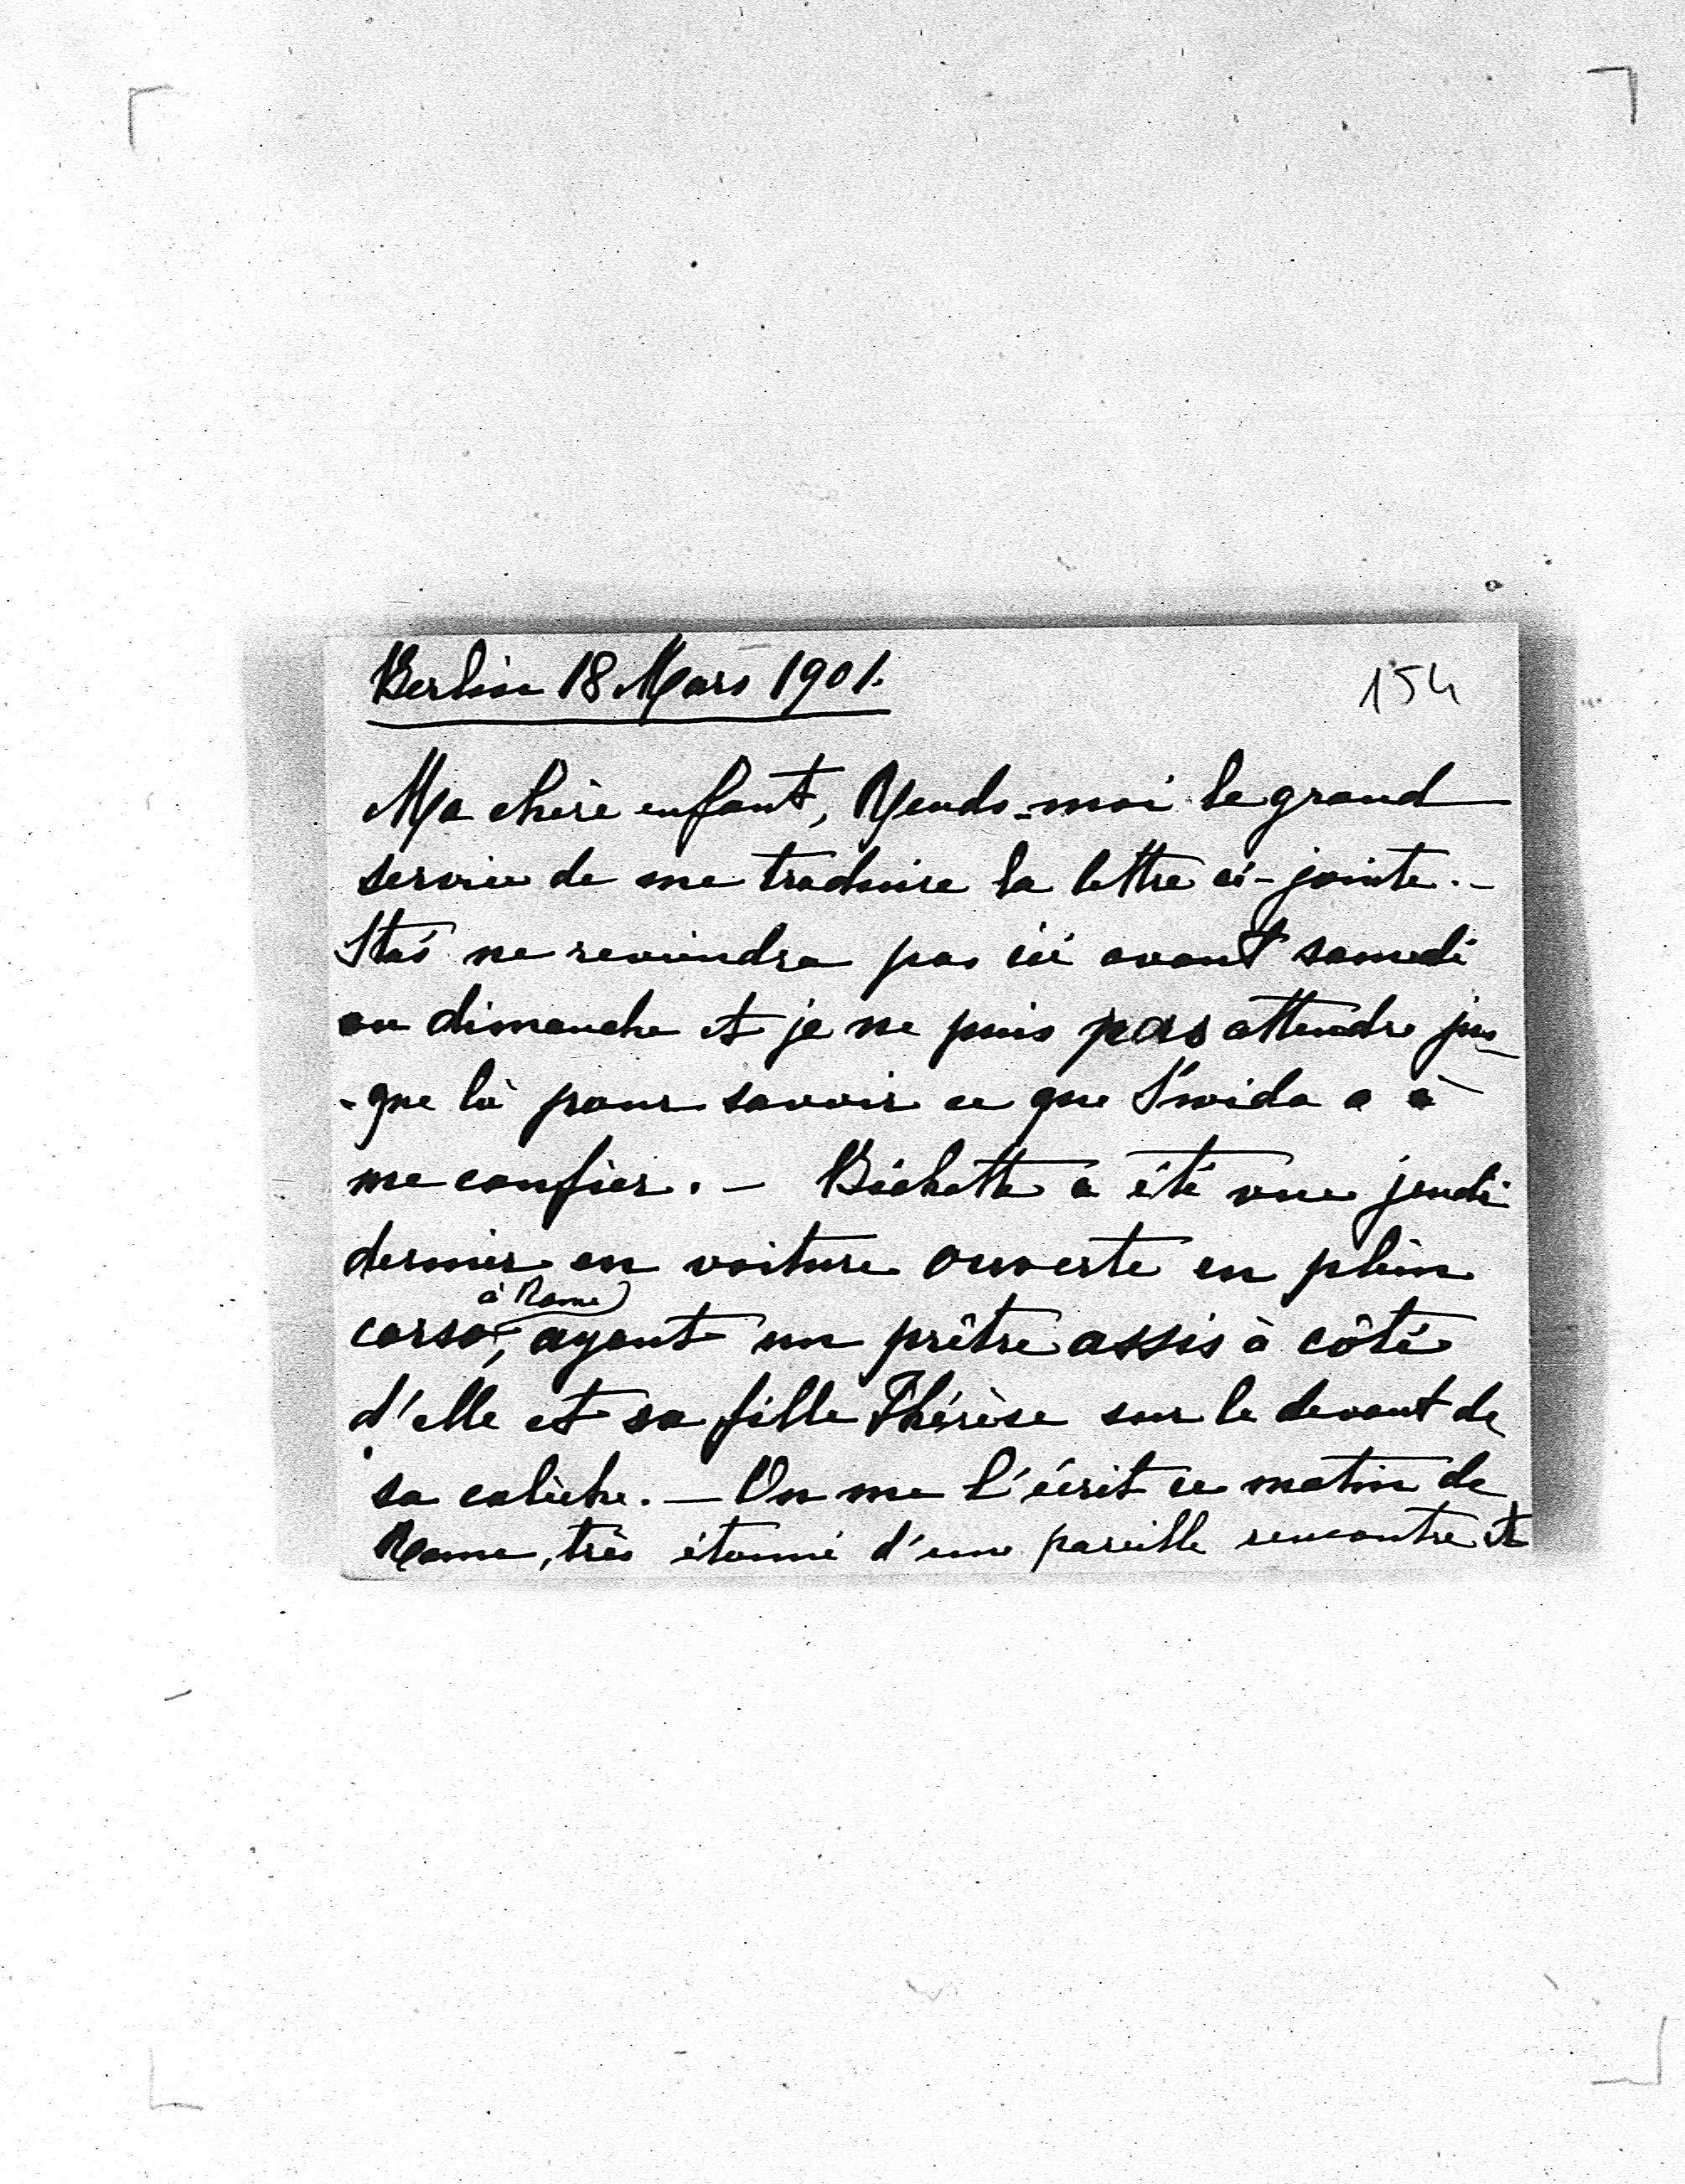 Berlin 18 Mars 1901.
154
Ma chère enfant, Rends-moi le grand
service de me traduire la lettre ci-jointe.-
Staś ne reviendra pas ici avant samedi
ou dimanche et je ne puis pas attendre jus
-que là pour savoir ce que Świda a à
me confier. - Bichette a été vue jeudi
dernier en voiture ouverte en plein
à Rome
corso, ayant un prêtre assis à côté
d'elle et sa fille Thérèse sur le devant de
sa calèche. - On me l'écrit ce matin de
Rome, très étonné d'une pareille rencontre et